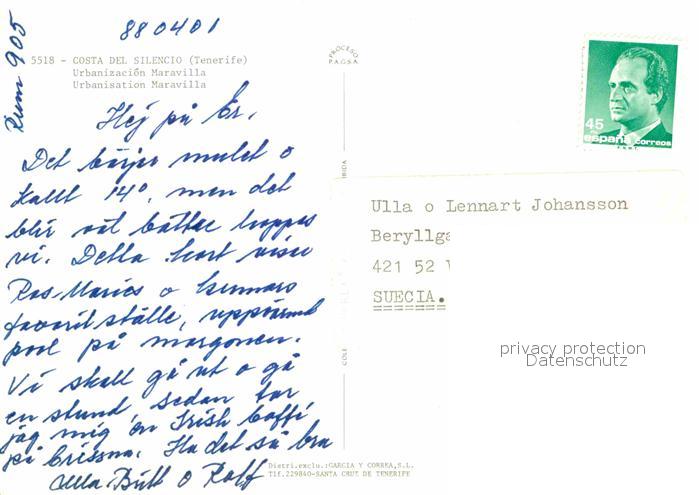 880401
Rum 905
5518 - COSTA DEL SILENCIO (Tenerife)
Urbanización Maravilla
Urbanisation Maravilla
PROCESO
P.A.G.S.A.
45
españa correos
Hej på Er.
Det börjar mulet o
kallt 14°, men det
blir väl bättre hoppas
vi. Detta kort visar
Ros-Maries o Gunnars
favorit ställe, uppvärmd
pool på morgonen.
Vi skall gå ut o gå
en stund, sedan tar
jag mig en Irish Coffé
på Crissna. Ha det så bra
Ulla-Britt o Rolf
Ulla o Lennart Johansson
Beryllga
421 52
SUECIA.
privacy protection
Datenschutz
Distri.exclu.:GARCIA Y CORREA,S.L.
Tlf.229840-SANTA CRUZ DE TENERIFE